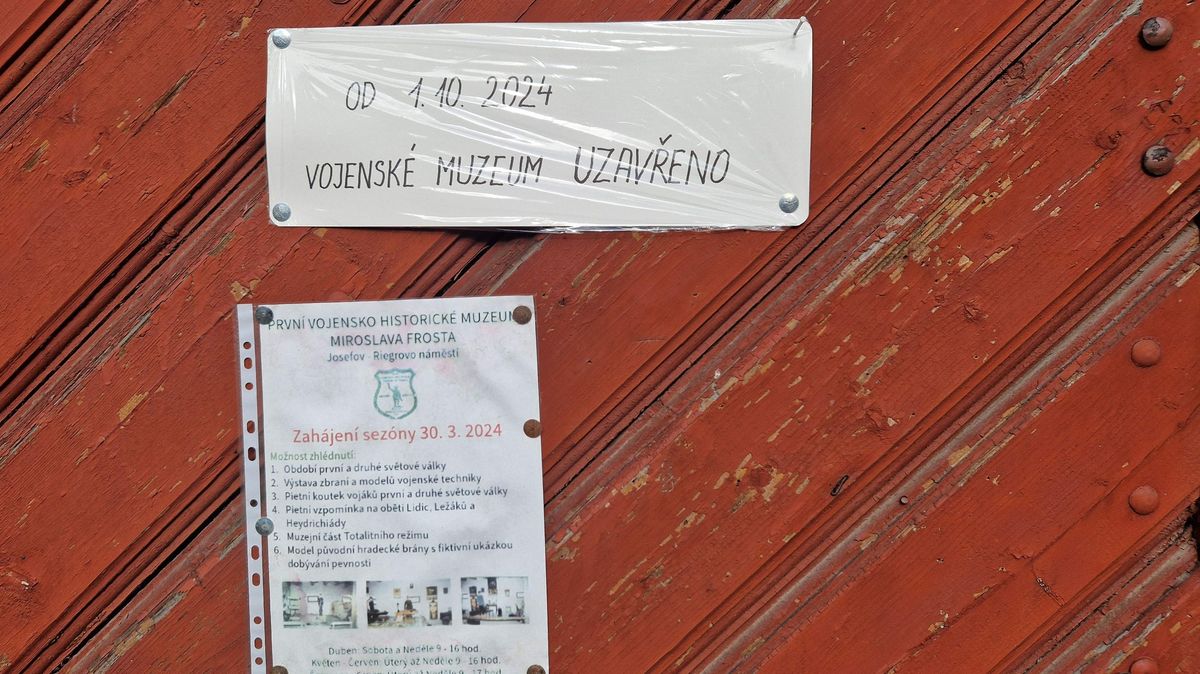 OD 1.10. 2024
VOJENSKÉ MUZEUM UZAVŘENO
PRVNÍ VOJENSKO HISTORICKÉ MUZEUM
MIROSLAVA FROSTA
Josefov - Riegrovo náměstí
Zahájení sezóny 30. 3. 2024
Možnost zhlédnutí:
1. Období první a druhé světové války
2. Výstava zbraní a modelů vojenské techniky
3. Pietní koutek vojáků první a druhé světové války
4. Pietní vzpomínka na oběti Lidic, Ležáků a
Heydrichiády
5. Muzejní část Totalitního režimu
6. Model původní hradecké brány s fiktivní ukázkou
dobývání pevnosti
Duben: Sobota a Neděle 9 - 16 hod.
Květen - Červen: Úterý až Neděle 9 - 16 hod.